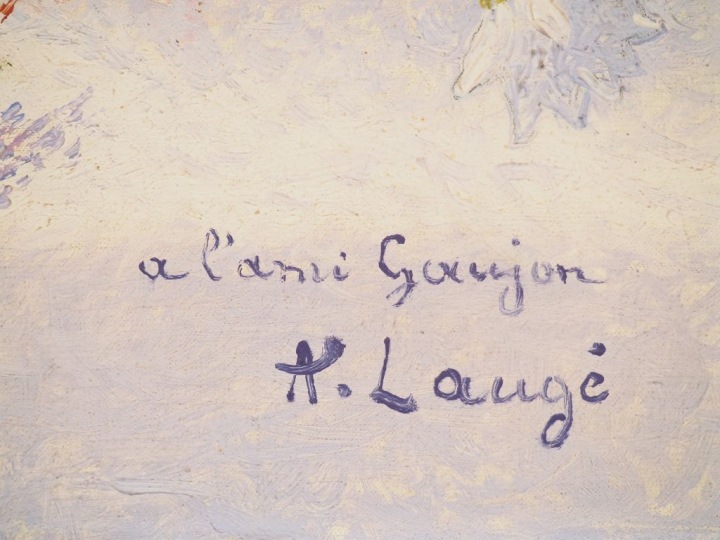 a l'ami Gaujon
A. Laugé